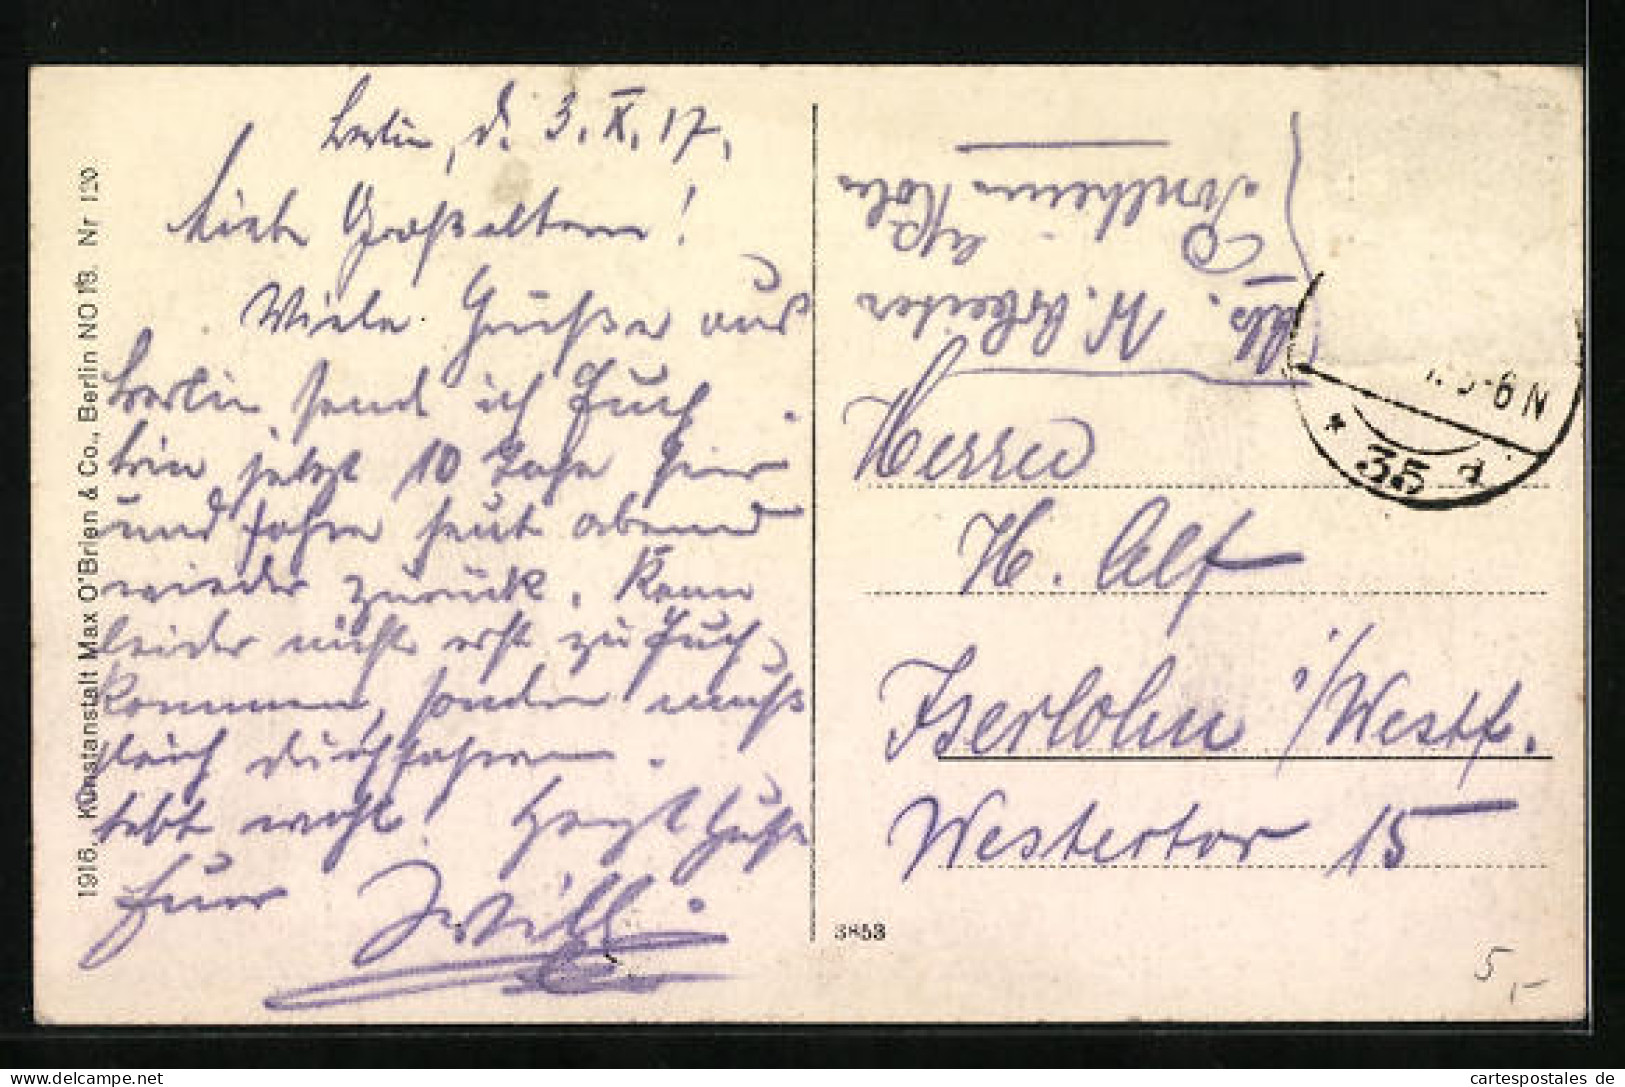 Berlin, d. 3. X. 17.
Liebe Großeltern!
Viele Grüße aus
Berlin send ich Euch.
bin jetzt 10 Tage hier
und fahre heute abend
wieder zurück. Kann
leider nicht erst zu Euch
kommen, sondern muß
gleich durchfahren.
Lebt wohl! Herzl Gruß
Euer Willi
1916, Kunstanstalt Max O'Brien & Co., Berlin NO 18. Nr 120
Abs. W.
Köln
Herrn
H. Alf
Iserlohn i/Westf.
Westertor 15
-6 N
* 35
3853
5,-
cartespostales de